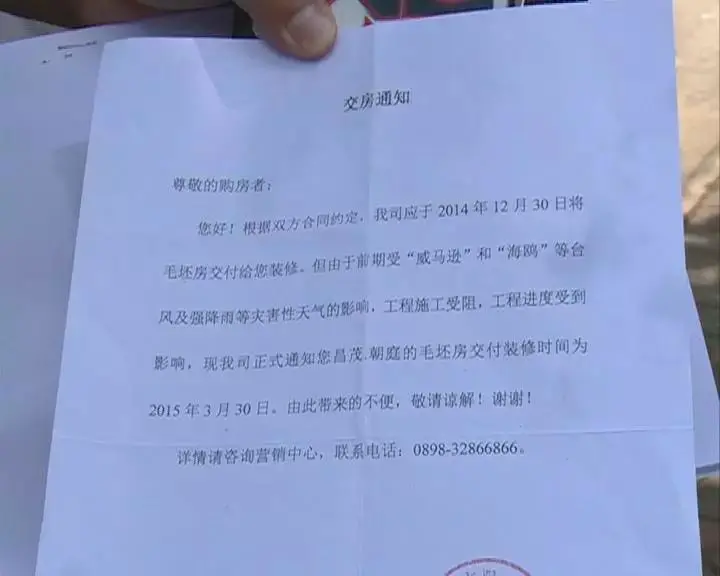 交房通知
尊敬的购房者：
您好！根据双方合同约定，我司应于 2014 年 12 月 30 日将
毛坯房交付给您装修。但由于前期受“威马逊”和“海鸥”等台
风及强降雨等灾害性天气的影响，工程施工受阻，工程进度受到
影响，现我司正式通知您昌茂.朝庭的毛坯房交付装修时间为
2015 年 3 月 30 日。由此带来的不便，敬请谅解！谢谢！
详情请咨询营销中心，联系电话：0898-32866866。